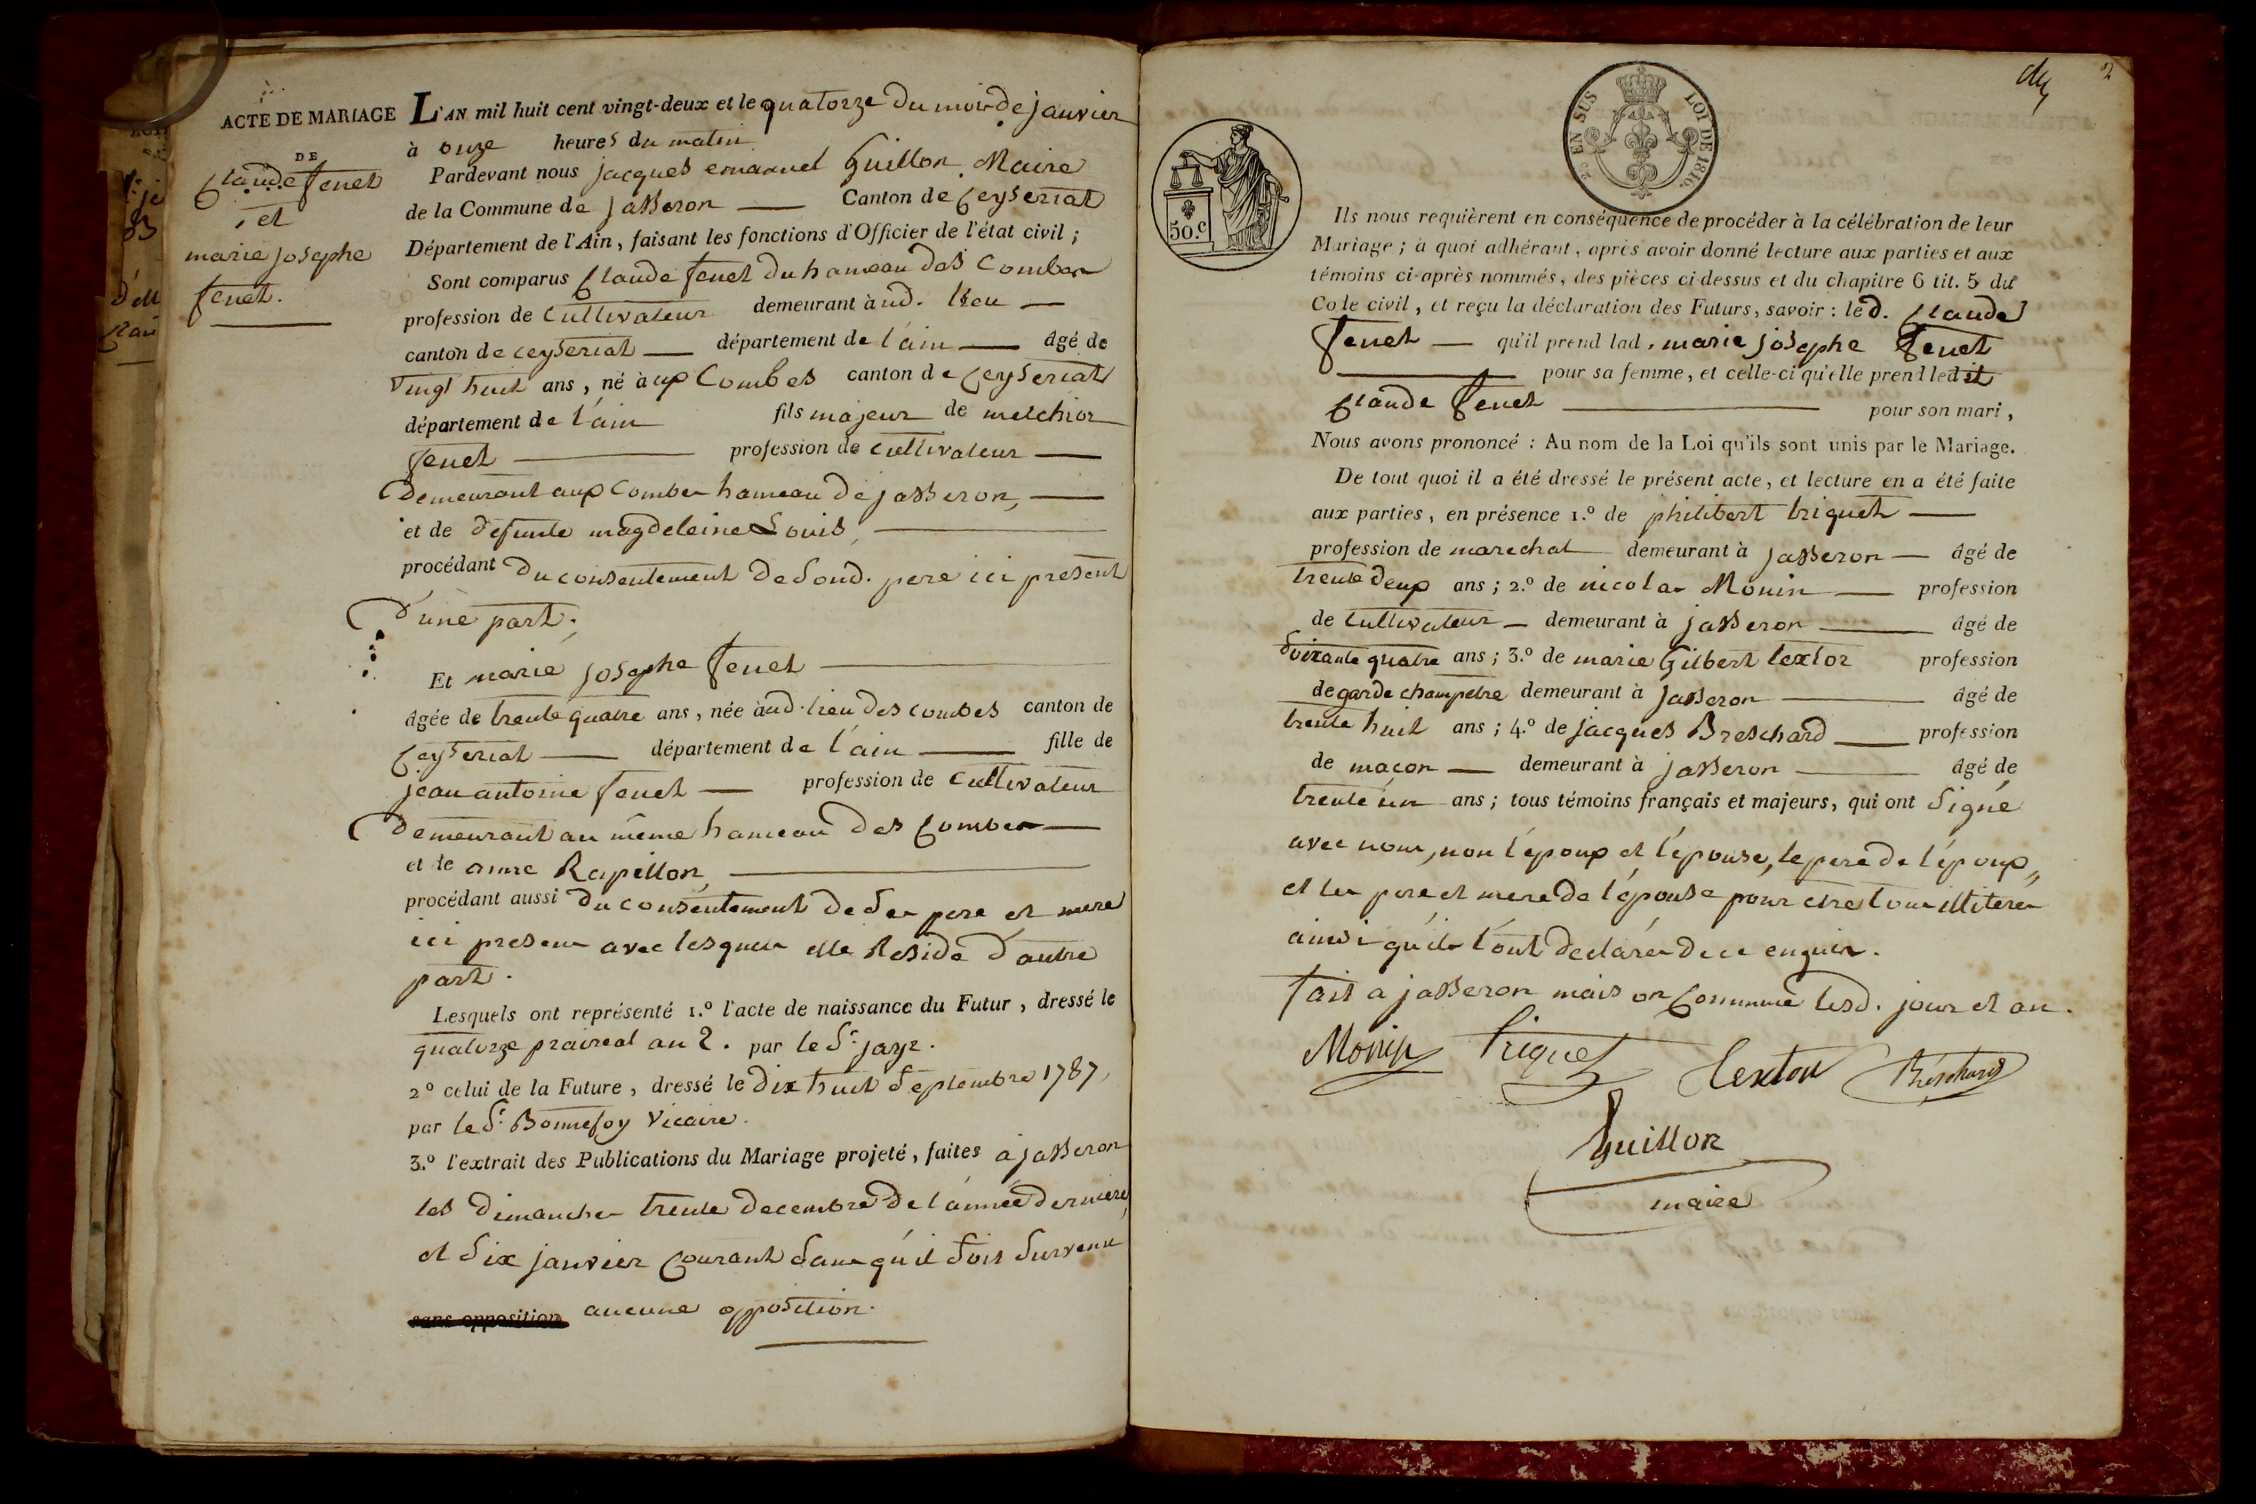 ACTE DE MARIAGE
DE
Claude fenet
et
marie josephe
fenet.
L'AN mil huit cent vingt-deux et le quatorze du mois de janvier
à onze heures du matin
Pardevant nous jacques emanuel Guillon Maire
de la Commune de jasseron — Canton de Ceyseriat
Département de l'Ain, faisant les fonctions d'Officier de l'état civil ;
Sont comparus Claude fenet du hameau des Combes
profession de cultivateur demeurant àud. lieu —
canton de ceyseriat — département de l'ain — âgé de
vingt huit ans, né aux Combes canton de Ceyseriat
département de l'ain fils majeur de melchior
fenet — profession de cultivateur —
demeurant aux Combes hameau de jasseron, —
et de defunte magdeleine Louis, —
procédant du consentement de sond. pere ici present
d'une part.
Et marie josephe fenet —
âgée de trente quatre ans, née àud. lieu des combes canton de
Ceyseriat — département de l'ain — fille de
jean antoine fenet — profession de cultivateur
demeurant au même hameau des Combes —
et de anne Rapillon, —
procédant aussi du consentement de ses pere et mere
ici presens avec lesquels elle Reside d'autre
part.
Lesquels ont représenté 1.º l'acte de naissance du Futur, dressé le
quatorze praireal an 2. par le Sr. jayr.
2º celui de la Future, dressé le dix huit septembre 1787,
par le Sr. Bonnefoy Vicaire.
3.º l'extrait des Publications du Mariage projeté, faites à jasseron
les dimanches trente decembre de l'année derniere,
et six janvier Courant sans qu'il soit survenu
sans opposition aucune opposition.
2
EN SUS LOI DE 1816.
50.c
Ils nous requièrent en conséquence de procéder à la célébration de leur
Mariage ; à quoi adhérant, après avoir donné lecture aux parties et aux
témoins ci-après nommés, des pièces ci-dessus et du chapitre 6 tit. 5 du
Code civil, et reçu la déclaration des Futurs, savoir : led. Claude
fenet — qu'il prend lad. marie josephe fenet
— pour sa femme, et celle-ci qu'elle prend ledit
Claude fenet — pour son mari,
Nous avons prononcé : Au nom de la Loi qu'ils sont unis par le Mariage.
De tout quoi il a été dressé le présent acte, et lecture en a été faite
aux parties, en présence 1.º de philibert triquet —
profession de marechal — demeurant à jasseron — âgé de
trente deux ans ; 2.º de nicolas Monin — profession
de cultivateur — demeurant à jasseron — âgé de
soixante quatre ans ; 3.º de marie Gilbert textor profession
de garde champetre demeurant à jasseron — âgé de
trente huit ans ; 4.º de jacques Breschard — profession
de maçon — demeurant à jasseron — âgé de
trente un ans ; tous témoins français et majeurs, qui ont signé
avec nous, non l'époux et l'épouse, le pere de l'époux,
et les pere et mere de l'épouse pour etre tous illiterés
ainsi qu'ils l'ont declaré de ce enquis.
fait a jasseron maison Commune lesd. jour et an.
Monin triquet textor Breschard
Guillon
maire